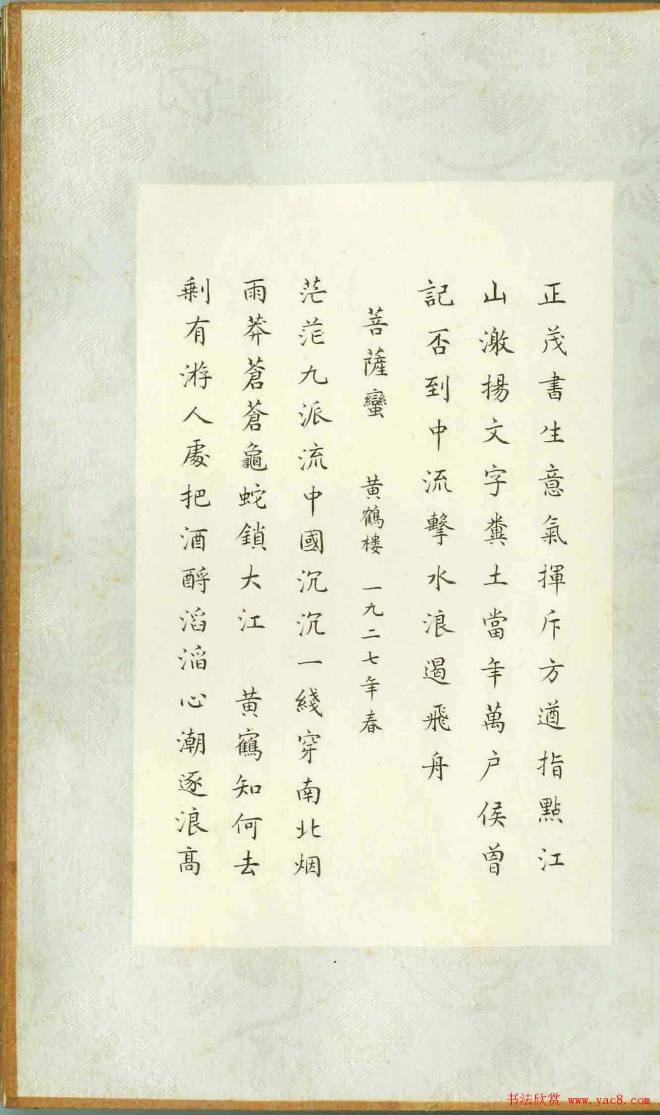 正茂書生意氣揮斥方遒指點江
山激揚文字糞土當年萬户侯曾
記否到中流擊水浪遏飛舟
菩薩蠻 黄鶴樓 一九二七年春
茫茫九派流中國沉沉一綫穿南北烟
雨莽蒼蒼龜蛇鎖大江 黄鶴知何去
剩有游人處把酒酹滔滔心潮逐浪高
书法欣赏 www.yac8.com